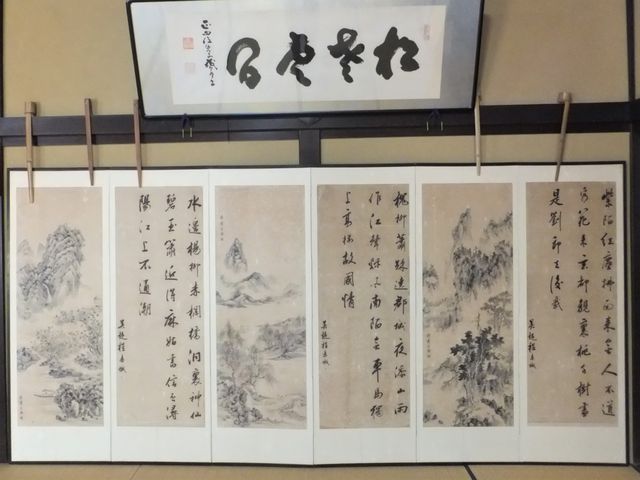 松老雲閒
紫陌紅塵拂面来無人不道
看花来玄都觀裏桃千樹盡
是劉郎去後栽
槐柳蕭疎遶郡城夜添山雨
作江聲秋風南陌無車馬獨
上高樓故國情
水邊楊柳赤欄橋洞裏神仙
碧玉簫近得麻姑書信否潯
陽江上不通潮